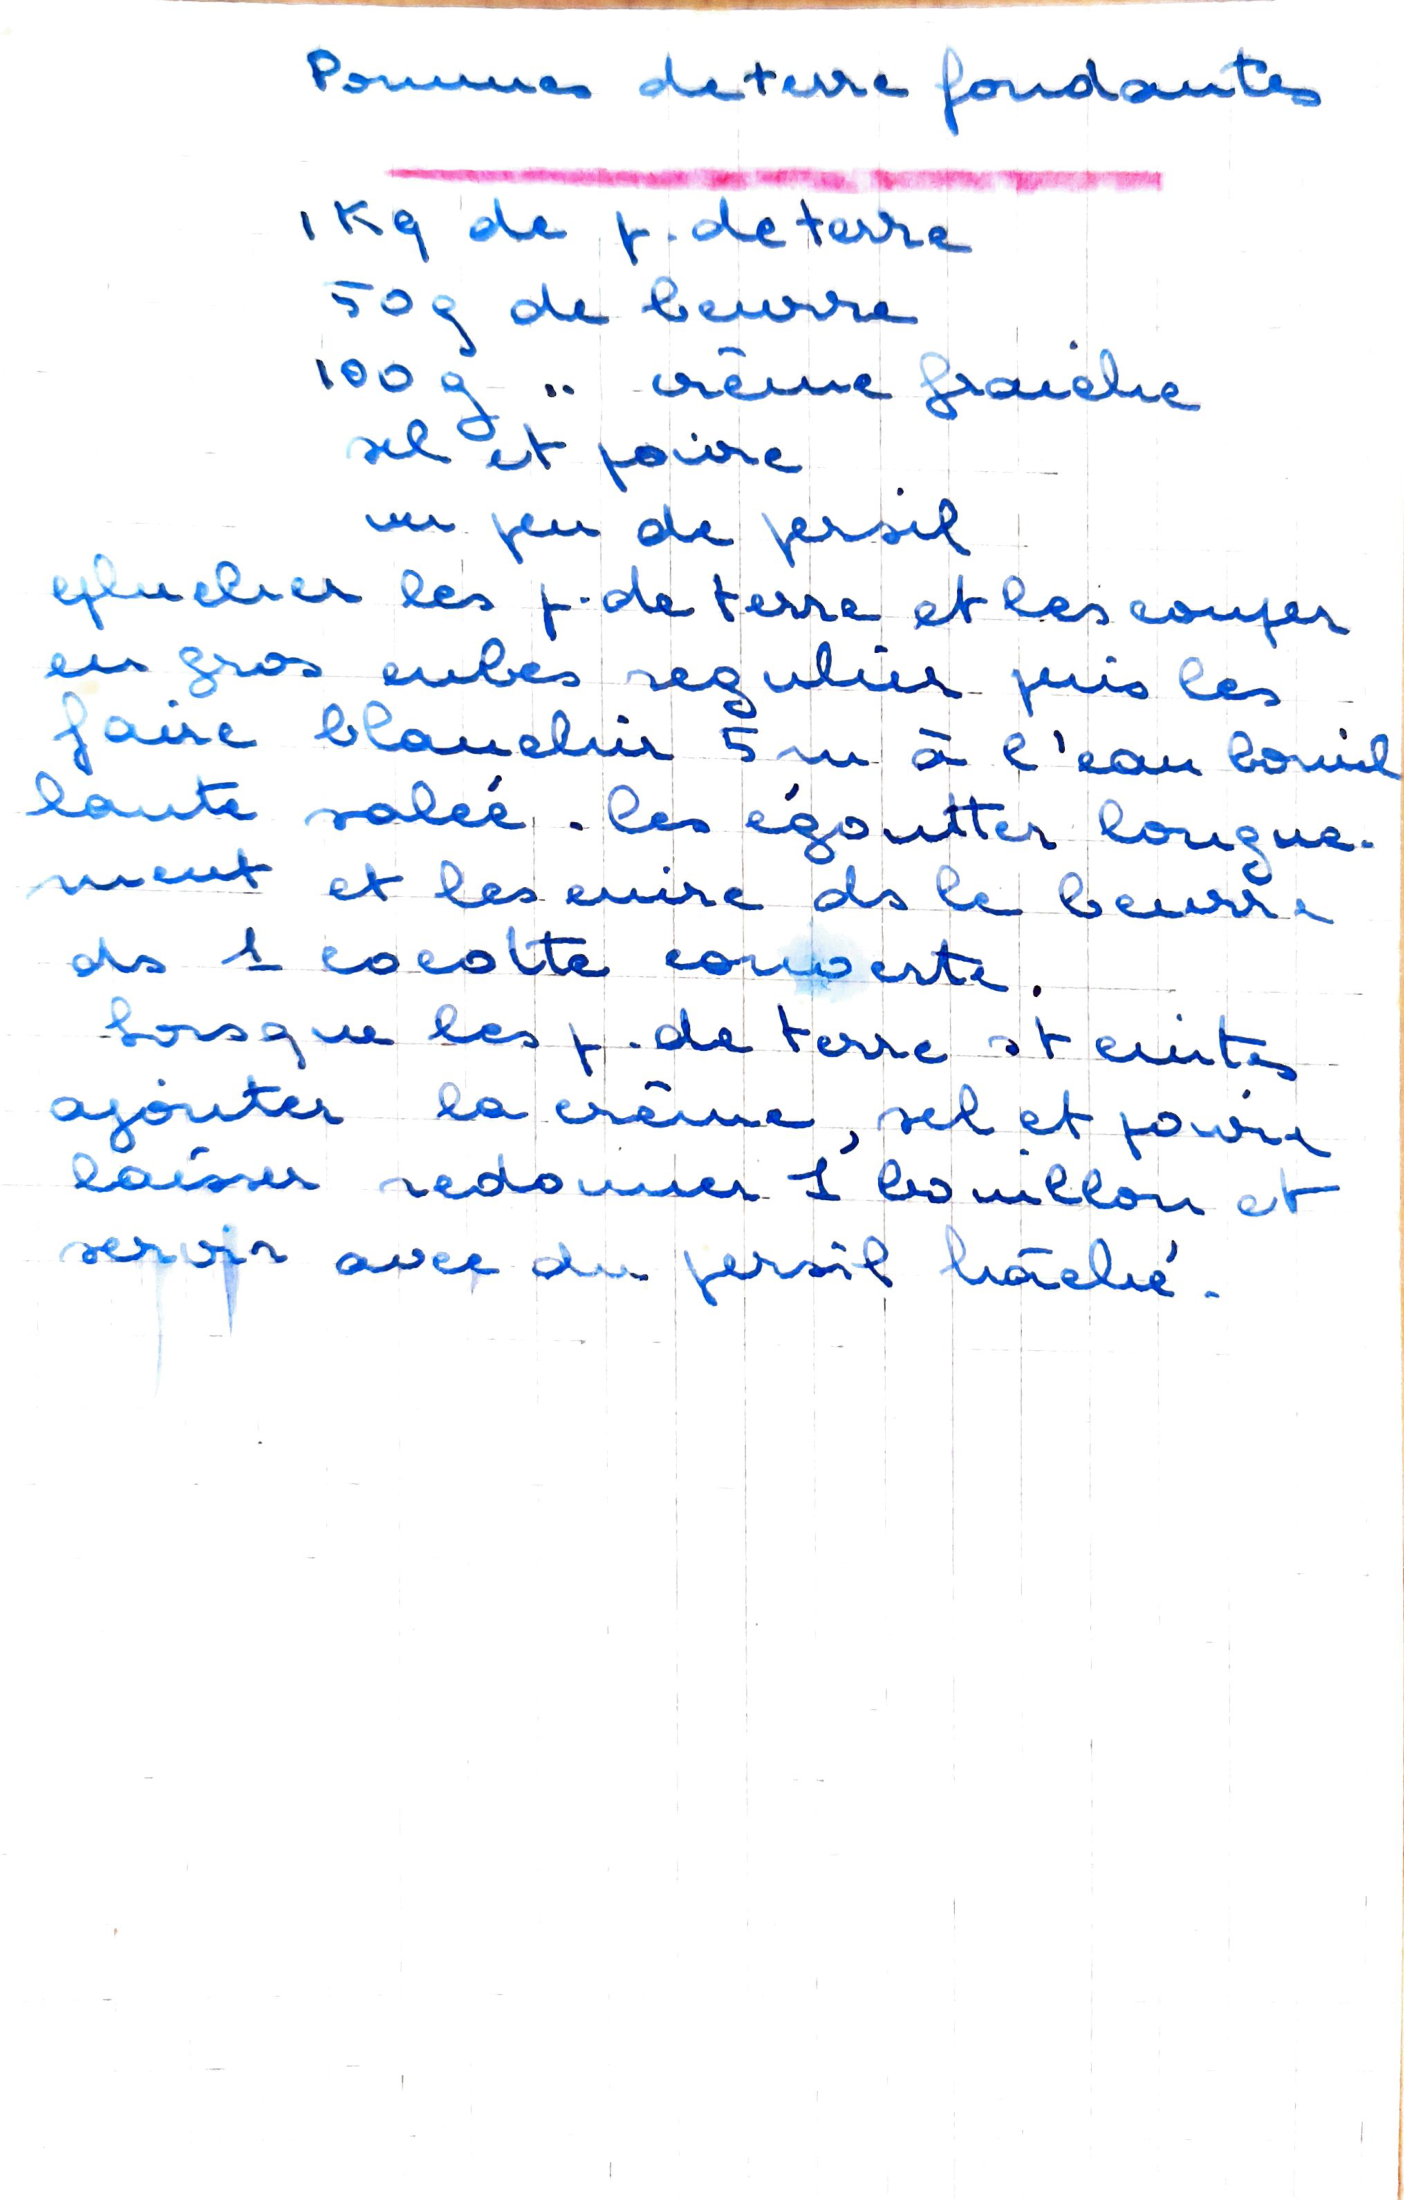 Pommes de terre fondantes
1 Kg de p. de terre
50 g de beurre
100 g " crême fraiche
sel et poivre
un peu de persil
eplucher les p. de terre et les couper
en gros cubes regulier puis les
faire blanchir 5 m à l'eau bouil
lante salée. les égoutter longue-
ment et les cuire ds le beurre
ds 1 cocotte couverte.
Lorsque les p. de terre st cuites
ajouter la crême, sel et poivre
laisser redonner 1 bouillon et
servir avec du persil hâché.